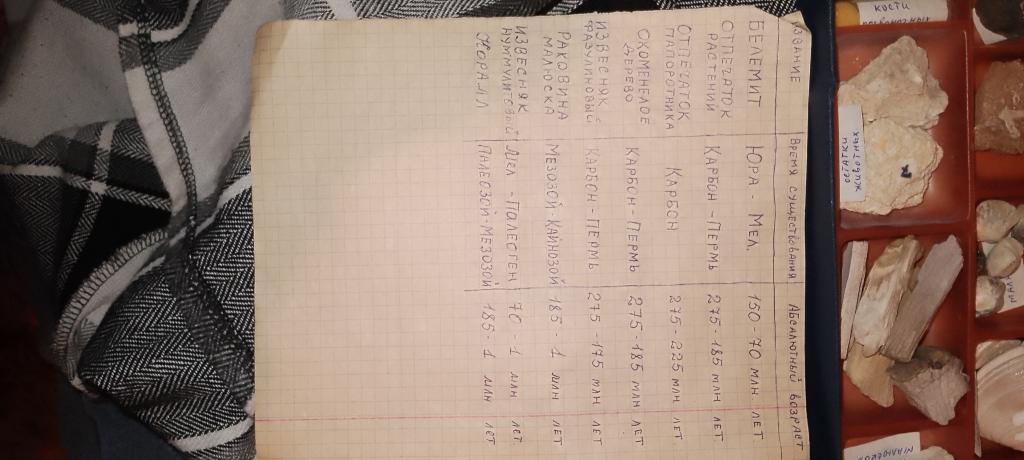 НАЗВАНИЕ ВРЕМЯ СУЩЕСТВОВАНИЯ АБСАЛЮТНЫЙ ВОЗРАСТ
БЕЛЕМИТ ЮРА - МЕЛ. 150-70 МЛН ЛЕТ
ОТПЕЧАТОК
РАСТЕНИЙ КАРБОН - ПЕРМЬ 275-185 МЛН ЛЕТ
ОТПЕЧАТОК
ПАПОРОТНИКА КАРБОН 275-225 МЛН ЛЕТ
ОКОМЕНЕЛОЕ
ДЕРЕВО КАРБОН-ПЕРМЬ 275-185 МЛН ЛЕТ
ИЗВЕСНЯК
ФАЗУЛИНОВЫЙ КАРБОН-ПЕРМЬ 275-175 МЛН ЛЕТ
РАКОВИНА
МАЛЮСКА МЕЗОЗОЙ-КАЙНОЗОЙ 185-1 МЛН ЛЕТ
ИЗВЕСНЯК
НУММУЛИТОВЫЙ МЕЛ-ПАЛЕОГЕН 70-1 МЛН ЛЕТ
КОРАЛЛ ПАЛЕОЗОЙ-МЕЗОЗОЙ 185-1 МЛН ЛЕТ
КОСТИ
ОСТАТКИ
ЖИВОТНЫХ